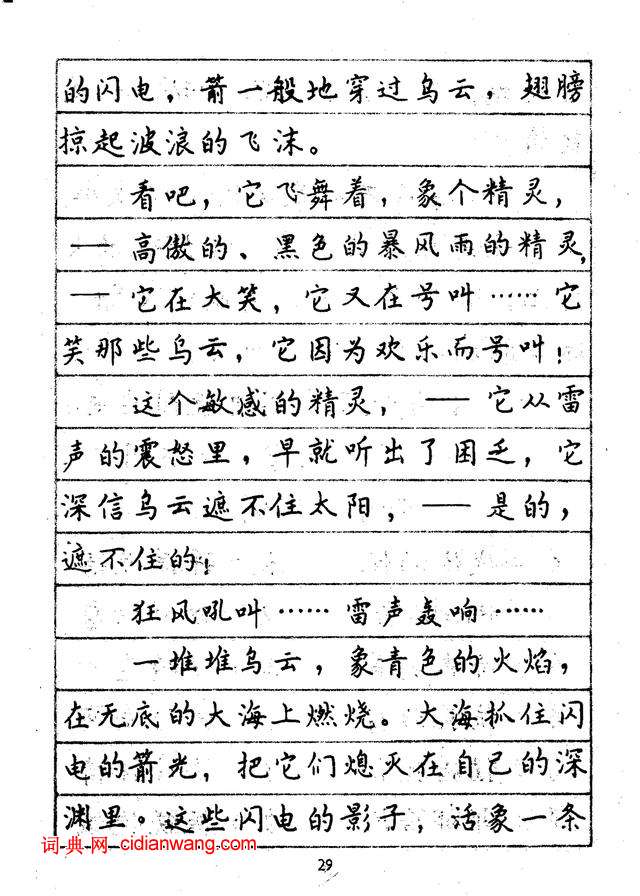 的闪电，箭一般地穿过乌云，翅膀
掠起波浪的飞沫。
看吧，它飞舞着，象个精灵，
—— 高傲的、黑色的暴风雨的精灵，
—— 它在大笑，它又在号叫……它
笑那些乌云，它因为欢乐而号叫！
这个敏感的精灵，—— 它从雷
声的震怒里，早就听出了困乏，它
深信乌云遮不住太阳，—— 是的，
遮不住的！
狂风吼叫……雷声轰响……
一堆堆乌云，象青色的火焰，
在无底的大海上燃烧。大海抓住闪
电的箭光，把它们熄灭在自己的深
渊里。这些闪电的影子，活象一条
词典网 cidianwang.com
29